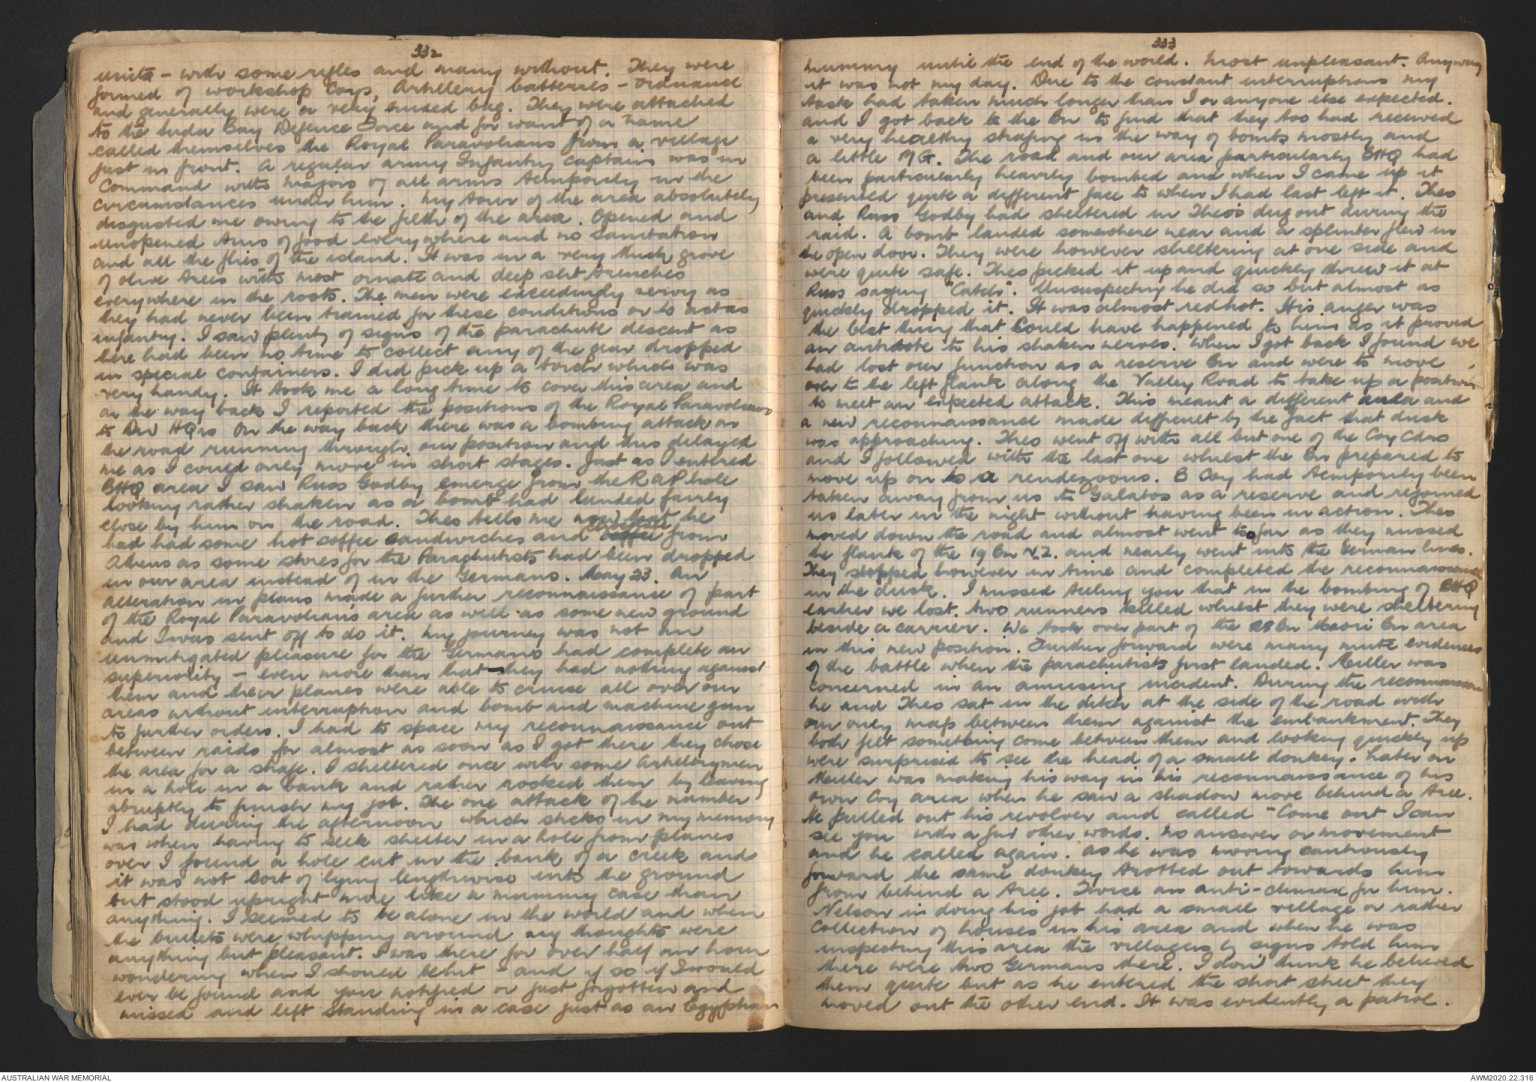 332
units - with some rifles and many without. They were
formed of workshop Corps, Artillery batteries - Ordnance
and generally were a very mixed bag. They were attached
to the Suda Bay Defence Force and for want of a name
called themselves the Royal Paravolians from a village
just in front. A regular army Infantry Captain was in
Command with Majors of all arms temporarily in the
circumstances under him. My tour of the area absolutely
disgusted me owing to the filth of the area. Opened and
unopened tins of food everywhere and no sanitation
and all the flies of the island. It was in a very thick grove
of olive trees with most ornate and deep slit trenches
everywhere in the roots. The men were exceedingly nervy as
they had never been trained for these conditions or to act as
infantry. I saw plenty of signs of the parachute descent as
there had been no time to collect any of the gear dropped
in special containers. I did pick up a torch which was
very handy. It took me a long time to cover this area and
on the way back I reported the positions of the Royal Paravolians
to Div HQrs On the way back there was a bombing attack on
the road running through our position and this delayed
me as I could only move in short stages. Just as I entered
BHQ area I saw Russ Godby emerge from the RAP hole
looking rather shaken as a bomb had landed fairly
close by him on the road. Theo tells me now that he
had had some hot coffee sandwiches and from
Athens as some stores for the Parachutists had been dropped
in our area instead of in the Germans. May 23. An
alteration in plans made a further reconnaissance of part
of the Royal Paravolians area as well as some new ground
and I was sent off to do it. My journey was not an
unmitigated pleasure for the Germans had complete air
superiority - even more than that they had nothing against
them and their planes were able to cruise all over our
areas without interruption and bomb and machine gun
to further orders. I had to space my reconnaissance out
between raids for almost as soon as I got there they chose
the area for a strafe. I sheltered once with some Artillerymen
in a hole in a bank and rather rocked them by leaving
abruptly to finish my job. The one attack of the number
I had during the afternoon which sticks in my memory
was when having to seek shelter in a hole from planes
over I found a hole cut in the bank of a creek and
it was not sort of lying lengthwise into the ground
but stood upright more like a mummy case than
anything. I seemed to be alone in the world and when
the bullets were whipping around my thoughts were
anything but pleasant. I was there for over half an hour
wondering when I should be hit - and if so if I would
ever be found and you notified or just forgotten and
missed and left standing in a case just as an Egyptian
333
mummy until the end of the world. Most unpleasant. Anyway
it was not my day. Due to the constant interruptions my
task had taken much longer than I or anyone else expected.
and I got back to the Bn to find that they too had received
a very healthy strafing in the way of bombs mostly and
a little MG. The road and our area particularly BHQ had
been particularly heavily bombed and when I came up it
presented quite a different face to when I had last left it. Theo
and Russ Godby had sheltered in Theo's dug out during the
raid. A bomb landed somewhere near and a splinter flew in
the open door. They were however sheltering at one side and
were quite safe. Theo picked it up and quickly threw it at
Russ saying "Catch". Unsuspecting he did so but almost as
quickly dropped it. It was almost red hot. His anger was
the best thing that could have happened to him as it proved
an antidote to his shaken nerves. When I got back I found we
had lost our function as a reserve Bn and were to move
over to the left flank along the Valley Road to take up a position
to meet an expected attack. This meant a different area and
a new reconnaissance made difficult by the fact that dusk
was approaching. Theo went off with all but one of the Coy Cdrs
and I followed with the last one whilst the Bn prepared to
move up on to a rendezvous. B Coy had temporarily been
taken away from us to Galatos as a reserve and rejoined
us later in the night without having been in action. Theo
moved down the road and almost went too far as they missed
the flank of the 19 Bn N.Z. and nearly went into the German lines.
They stopped however in time and completed the reconnaissance
in the dusk. I missed telling you that in the bombing of BHQ
earlier we lost two runners killed whilst they were sheltering
beside a carrier. We took over part of the 28 Bn Maori Bn area
in this new position. Further forward were many mute evidences
of the battle when the parachutists first landed. Miller was
concerned in an amusing incident. During the reconnaissance
he and Theo sat in the ditch at the side of the road with
our only map between them against the embankment. They
both felt something come between them and looking quickly up
were surprised to see the head of a small donkey. Later on
Miller was making his way in his reconnaissance of his
own Coy area when he saw a shadow move behind a tree.
He pulled out his revolver and called "Come out I can
see you with a few other words. No answer or movement
and he called again. As he was moving cautiously
forward the same donkey trotted out towards him
from behind a tree. Twice an anti-climax for him.
Nelson in doing his job had a small village or rather
collection of houses in his area and when he was
inspecting this area the villagers by signs told him
there were two Germans there. I don't think he believed
them quite but as he entered the short street they
moved out the other end. It was evidently a patrol.
AUSTRALIAN WAR MEMORIAL
AWM2020.22.316